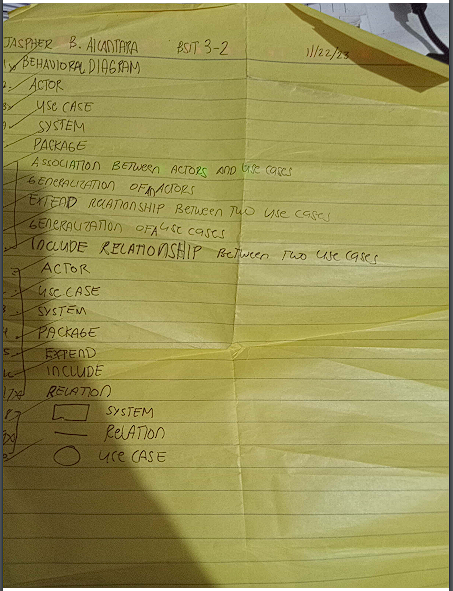 JASPHER B. ALCANTARA BSIT 3-2 11/22/23
BEHAVIORAL DIAGRAM
ACTOR
USE CASE
SYSTEM
PACKAGE
ASSOCIATION BETWEEN ACTORS AND USE CASES
GENERALIZATION OF AN ACTORS
EXTEND RELATIONSHIP BETWEEN TWO USE CASES
GENERALIZATION OF A USE CASES
INCLUDE RELATIONSHIP BETWEEN TWO USE CASES
ACTOR
USE CASE
SYSTEM
PACKAGE
EXTEND
INCLUDE
RELATION
SYSTEM
RELATION
USE CASE